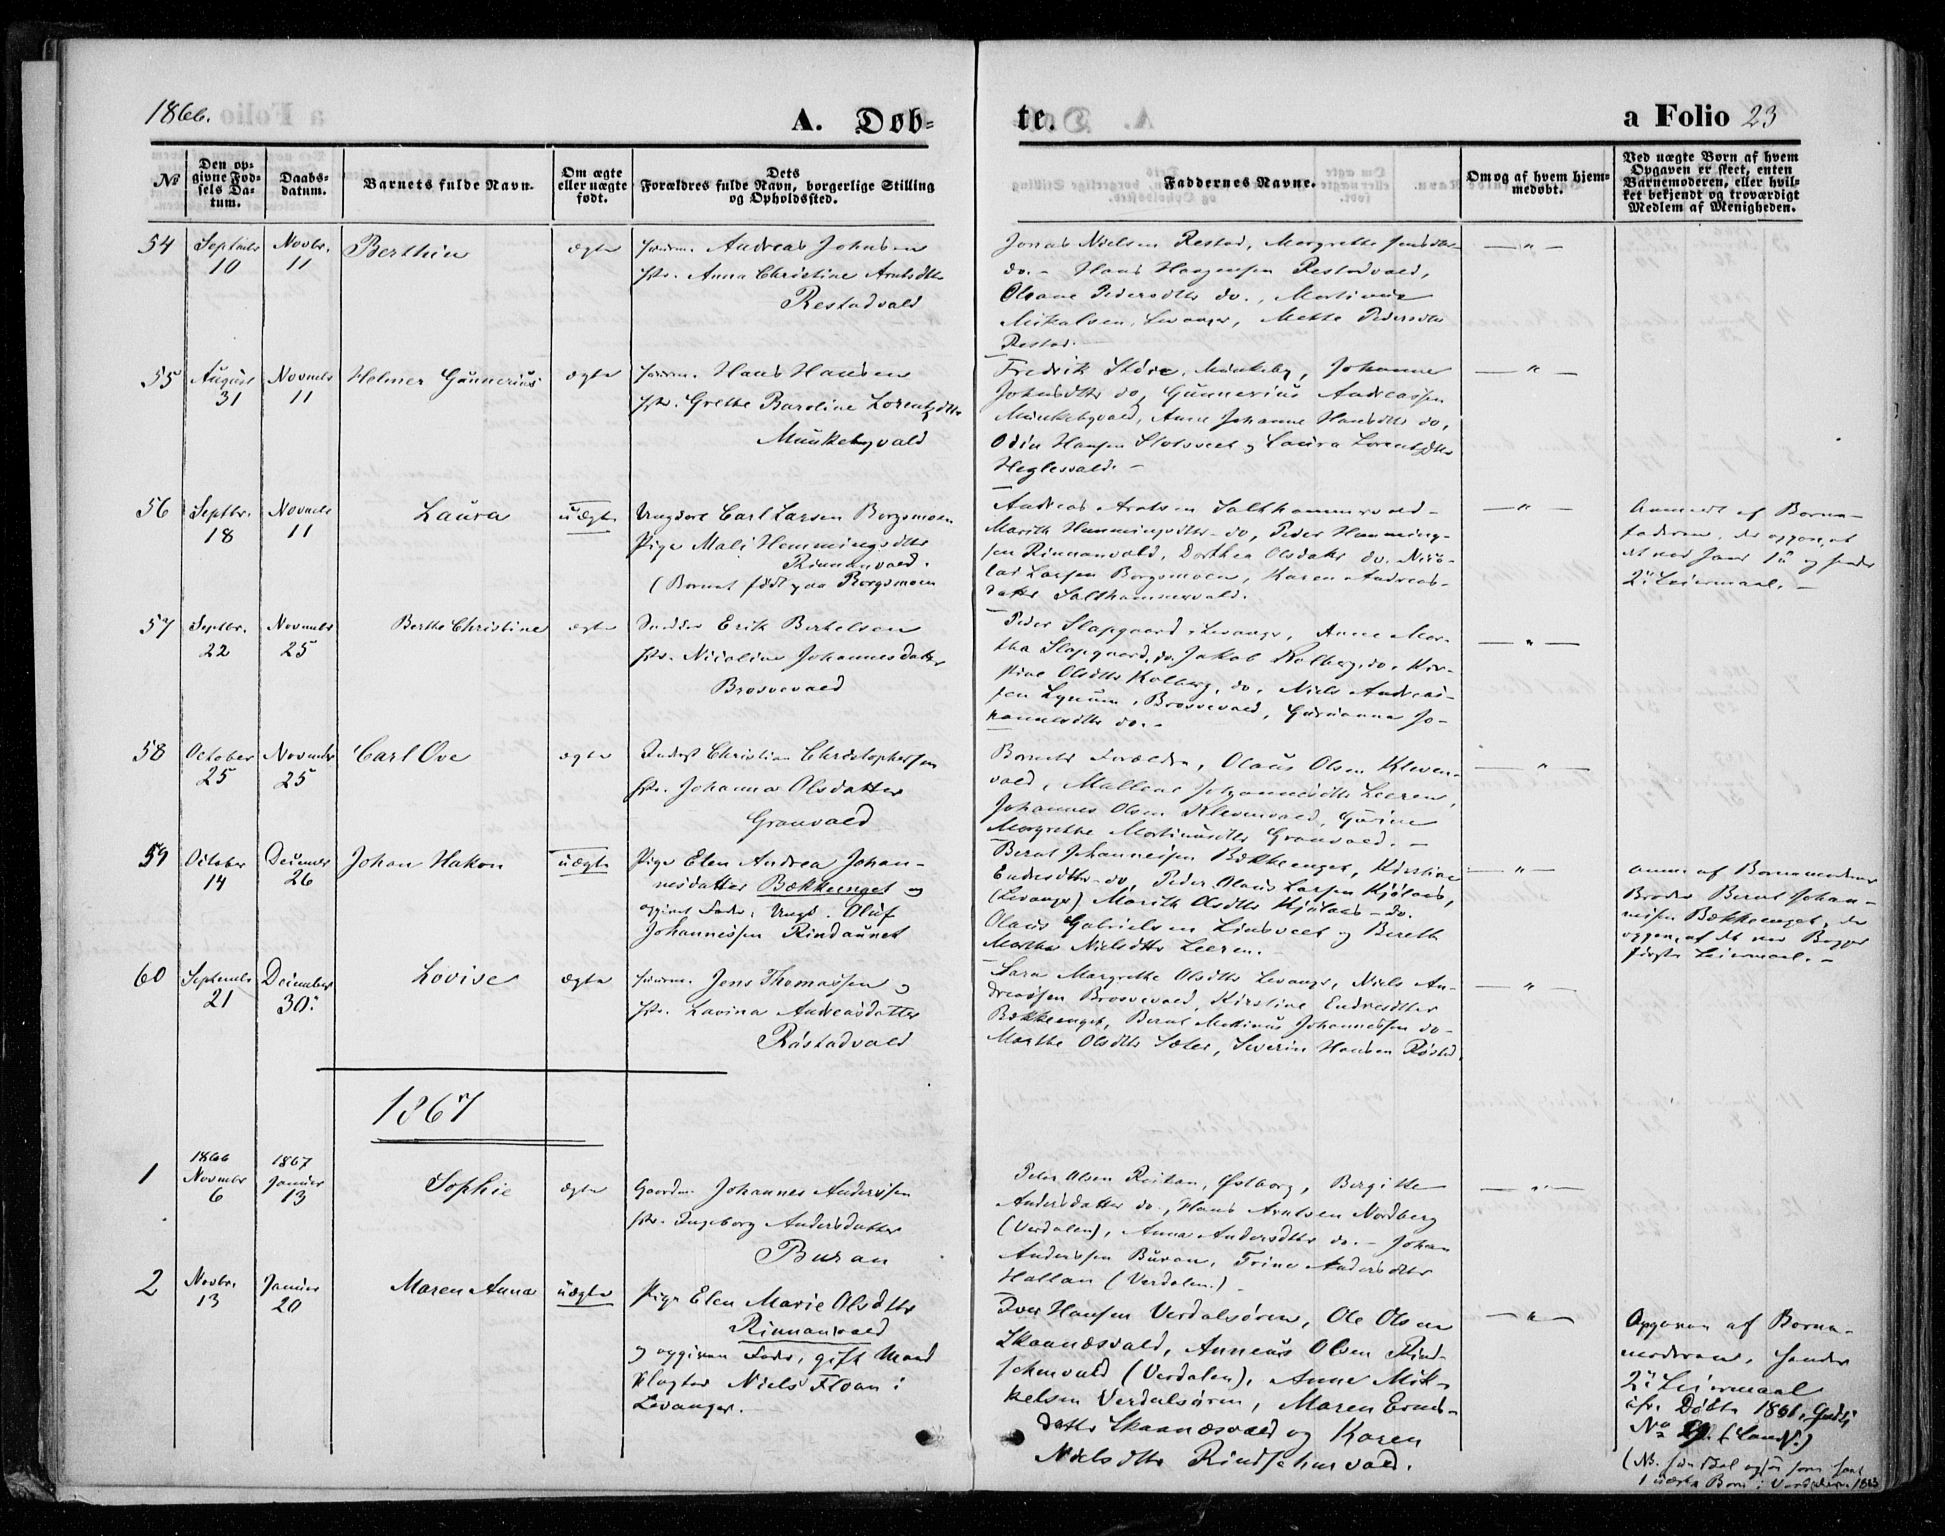 1866.
A. Døb-
te.
a Folio 23
No
Den op-
givne Fød-
sels Da-
tum.
Daabs-
datum.
Barnets fulde Navn.
Om ægte
eller uægte
født.
Dets
Forældres fulde Navn, borgerlige Stilling
og Opholdssted.
Faddernes Navne.
Om og af hvem hjem-
medøbt.
Ved uægte Børn af hvem
Opgaven er skeet, enten
Barnemoderen, eller hvil-
ket bekjendt og troværdigt
Medlem af Menigheden.
54
Septbr
10
Novbr.
11
Berthin
ægte
Andreas Johnsen
Anna Christine Arntsdtr
Restadvald
Jonas Nielsen Restad, Margrethe Jensdtr
do. - Hans Haagensen Restadvald,
Oleane Pedersdtr do., Martinus
Mikalsen, Levanger, Mette Pedersdtr
Restad.
55
August
31
Novembr
11
Helmer Gunnerius
ægte
Hans Hansen
Grethe Karoline Lorentzdtr
Munkebyvald
Fredrik Støre, Munkeby, Johanna
Johnsdtr do, Gunnerius Andreassen
Munkebyvald, Anne Johanna Hansdtr do,
Odin Hansen Slotsveet og Laura Lorentzdtr
Heglesvald. -
56
Septbr.
18
Novembr
11
Laura
uægte
Ungkarl Carl Larsen Borgsmoen
Pige Mali Hemmingsdtr
Rinnanvald.
(Barnet født paa Borgsmoen
Andreas Arntsen Salthammervald -
Marith Hemmingsdtr do, Peder Hemming-
sen Rinnanvald, Dorthea Olsdatr do, Nico-
lai Larsen Borgsmoen, Karen Andreas-
datter Salthammervald.
Anmeldt af Barne-
faderen, der opgav, at
det var hans 1ste og hendes
2det Leiermaal. -
57
Septbr.
22
Novembr
25
Berthe Christine
ægte
Erik Bertelsen
Nicoline Johannesdatter
Brosvevald
Peder Slapgaard, Levanger, Anne Mar-
tha Slapgaard, do, Jakob Kolberg, do, Kir-
stine Olsdtr Kolberg, do, Niels Andreas-
sen Lynum, Brosvevald, Gurianna Jo-
hannesdtr do. -
58
October
25
November
25
Carl Ove
ægte
Inderst Christian Christophersen
Johanna Olsdatter
Granvald
Barnets Forældre, Olaus Olsen Kleven-
vald, Malene Johannesdtr Leeren,
Johannes Olsen Klevenvald, Gurine
Margrethe Martinusdtr Granvald. -
59
October
14
December
26
Johan Hakon
uægte
Pige Elen Andrea Johan-
nesdatter Bækkeenget og
opgivet Fader: Ungk. Oluf
Johannessen Rindaunet
Bernt Johannessen Bækkeenget, Kirstine
Endresdtr do, Peder Olaus Larsen Kjølaas,
(Levanger) Marith Olsdtr Kjølaas - do.
Olaus Gabrielsen Lindsveet og Bereth
Martha Nielsdtr Leeren. -
anm. af Barnemoderens
Broder Bernt Johan-
nessen Bækkeenget, der
opgav, at det var Begges
første Leiermaal. -
60
September
21
December
30.
Lovise
ægte
Jens Thomassen og
Lavina Andreasdatter
Røstadvald
Sara Margrethe Olsdtr Levanger, Niels An-
dreassen Brosvevald, Kirstine Endresdtr
Bækkeenget, Bernt Mettinus Johannessen do -
Marthe Olsdtr Sæter, Severin Hansen Røstad.
1867
1
1866
Novembr
6
1867
Januar
13
Sophie
ægte
Gaardm. Johannes Anderssen
Ingeborg Andersdatter
Buran
Peter Olsen Reitan, Østborg, Bergitte
Andersdatter do., Hans Arntsen Nordberg
(Verdalen), Anna Andersdtr do. - Johan
Anderssen Buran, Trine Andersdtr
Hallan (Verdalen.)
2
Novbr.
13
Januar
20
Maren Anna
uægte
Pige Elen Marie Olsdtr
Rinnanvald
og opgiven Fader, gift Mand
Slagter Niels Floan i
Levanger.
Iver Hansen Verdalsøren, Ole Olsen
Skaanæsvald, Anneus Olsen Rind-
sehmvald (Verdalen), Anne Mik-
kelsen Verdalsøren, Maren Ernts-
datter Skaanæsvald og Karen
Nielsdtr Rindsehmvald.
Opgaven af Barne-
moderen, hendes
2det Leiermaal
cfr. Døbte 1861,
No 29. (Landf.)
(NB. hun skal ogsaa have havt
1 uægte Barn i Verdalen 1863